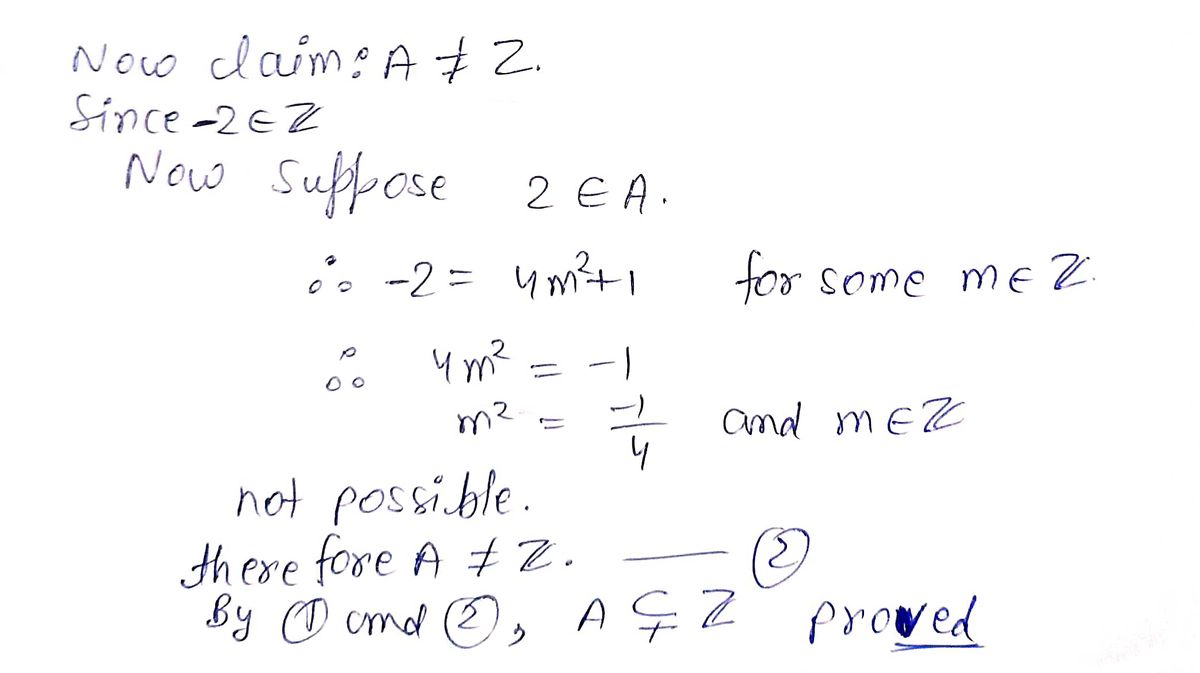 Now claim: A ≠ Z.
Since -2 ∈ ℤ
Now suppose 2 ∈ A.
∴ -2 = 4m²+1 for some m ∈ ℤ.
∴ 4m² = -1
m² = -1/4 and m ∈ ℤ
not possible.
therefore A ≠ ℤ. — ②
By ① and ②, A ⊊ Z proved